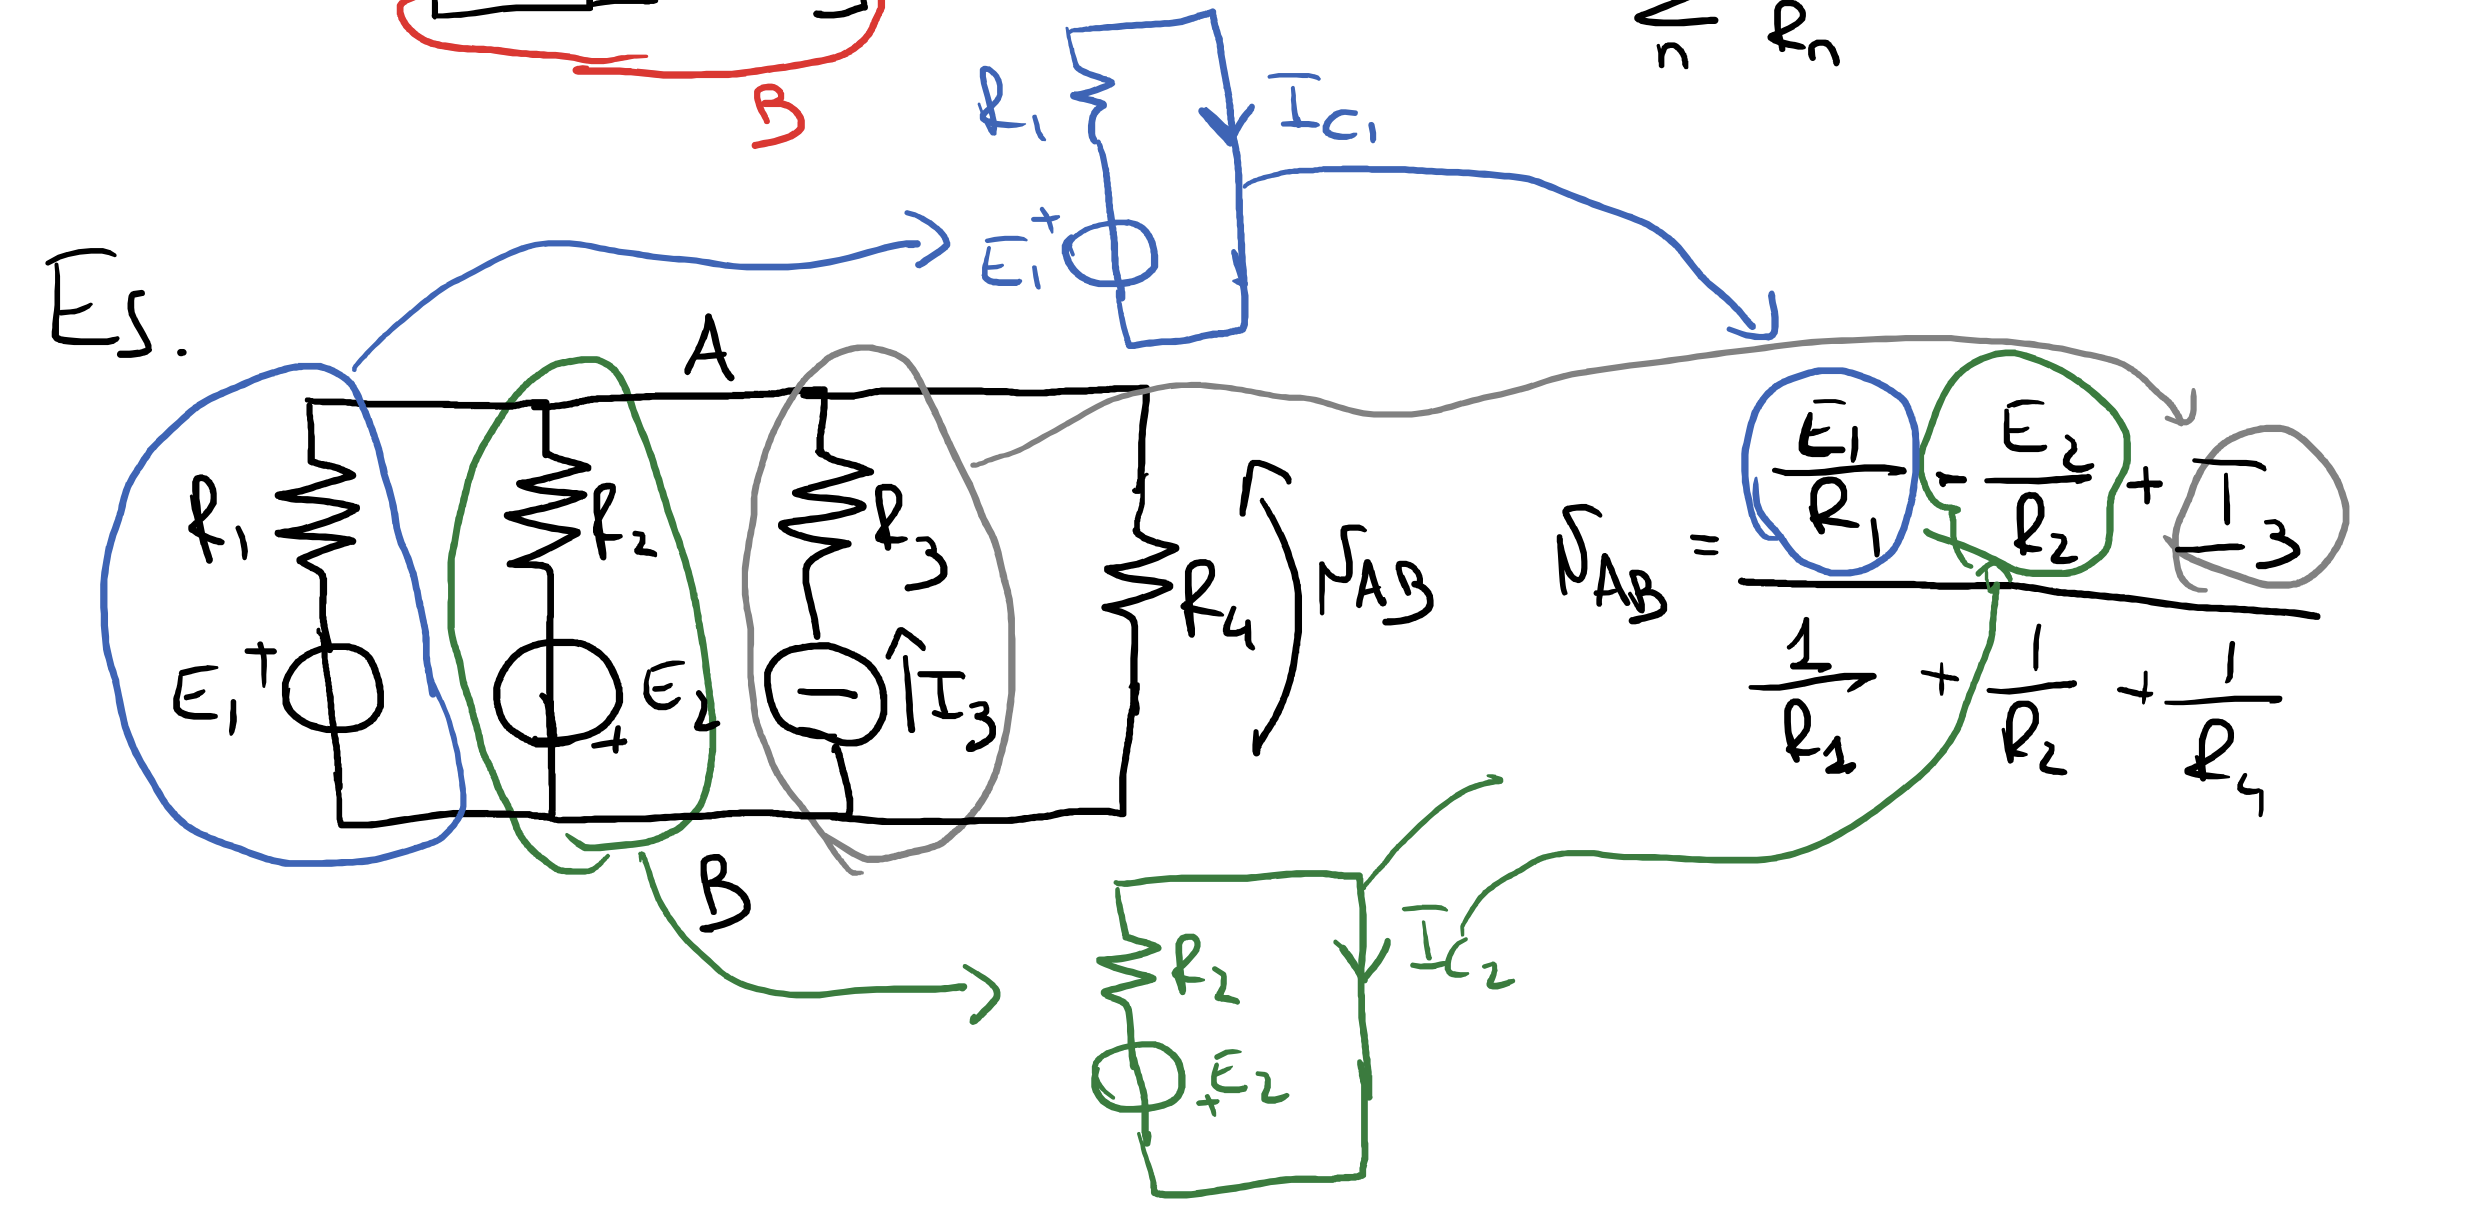 B
n Rₙ
R₁
I_C₁
E₁ +
Es.
A
R₁
R₂
R₃
R₄
E₁ +
E₂ +
I₃
v_AB
v_AB = (E₁/R₁ - E₂/R₂ + I₃) / (1/R₁ + 1/R₂ + 1/R₄)
B
R₂
I_C₂
E₂ +